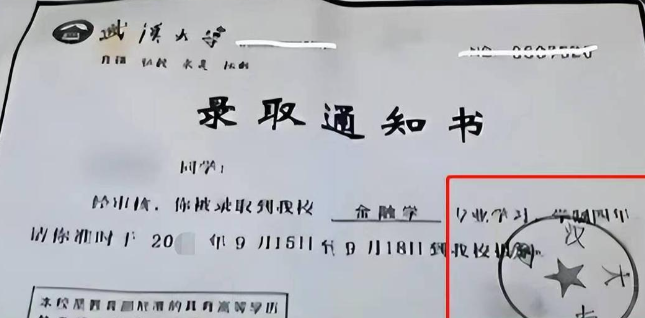 武汉大学
自强 弘毅 求是 拓新
录取通知书
同学：
经审核，你被录取到我校 金融学 专业学习，学制四年
请你准时于 20 年 9 月15日至 9 月18日到我校报到。
汉大
本校是教育部批准的具有高等学历